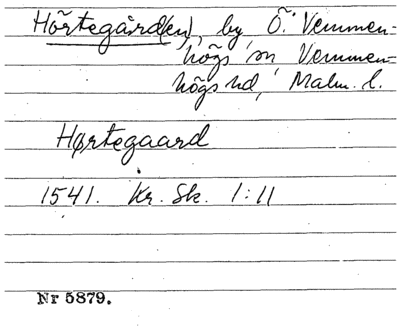 Hörtegård(en), by, Ö. Vemmen-
högs sn Vemmen-
högs hd, Malm. l.
Hørtegaard
1541. Kr. Sk. 1:11
Nr 5879.